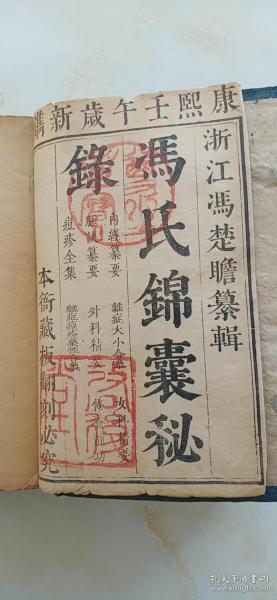 康熙壬午歲新鐫
浙江馮楚瞻纂輯
馮氏錦囊秘
錄
內經纂要
雜症大小合參
女科精要
脈訣纂要
外科精要
修養靜功
痘疹全集
雜症痘疹藥性合參
本衙藏板翻刻必究
孔夫子旧书网